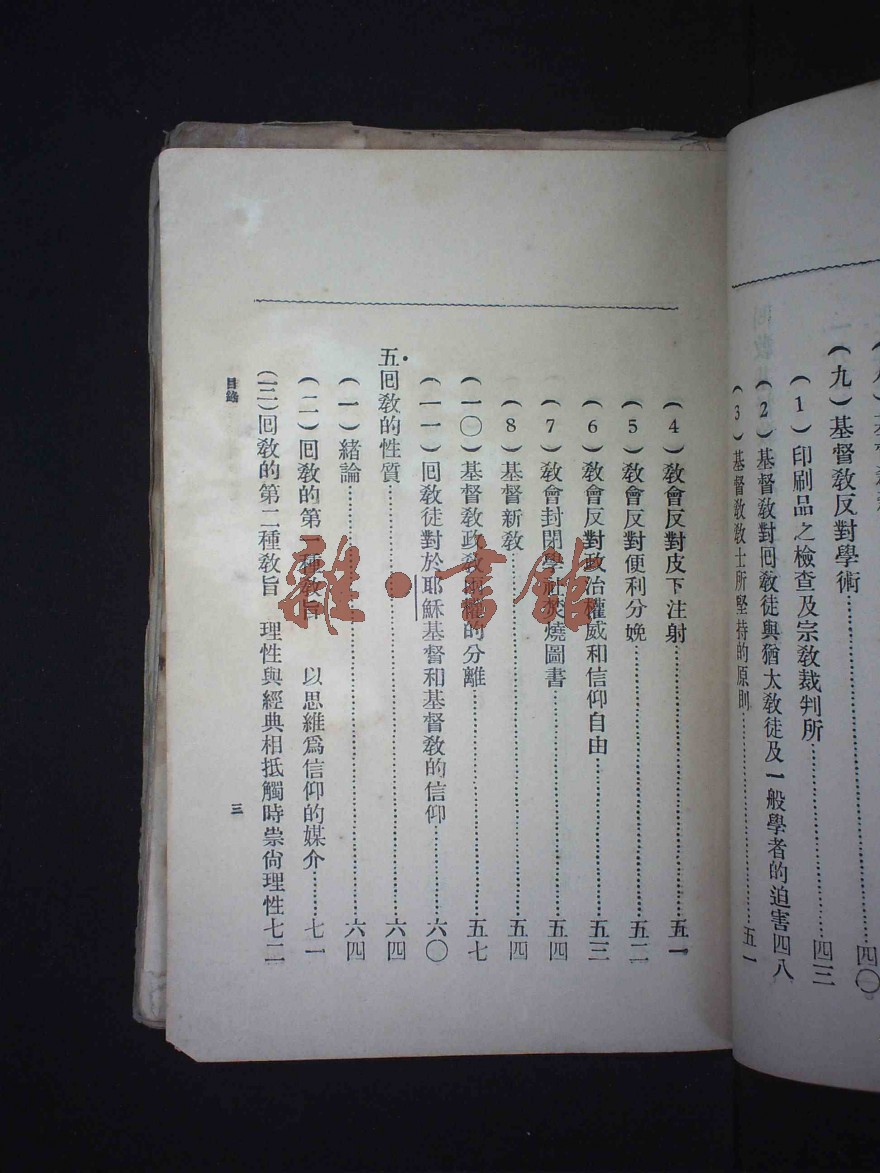 （九）基督教反對學術……四〇
（1）印刷品之檢查及宗教裁判所……四三
（2）基督教對回教徒與猶太教徒及一般學者的迫害四八
（3）基督教教士所堅持的原則……五一
（4）教會反對皮下注射……五一
（5）教會反對便利分娩……五二
（6）教會反對政治權威和信仰自由……五三
（7）教會封閉學社焚燒圖書……五四
（8）基督新教……五四
（一〇）基督教政教兩權的分離……五七
（一一）回教徒對於耶穌基督和基督教的信仰……六〇
五・回教的性質……六四
（一）緒論……六四
（二）回教的第一種教旨　以思維爲信仰的媒介……七一
（三）回教的第二種教旨　理性與經典相抵觸時崇尙理性七二
目錄
三
雜・書館